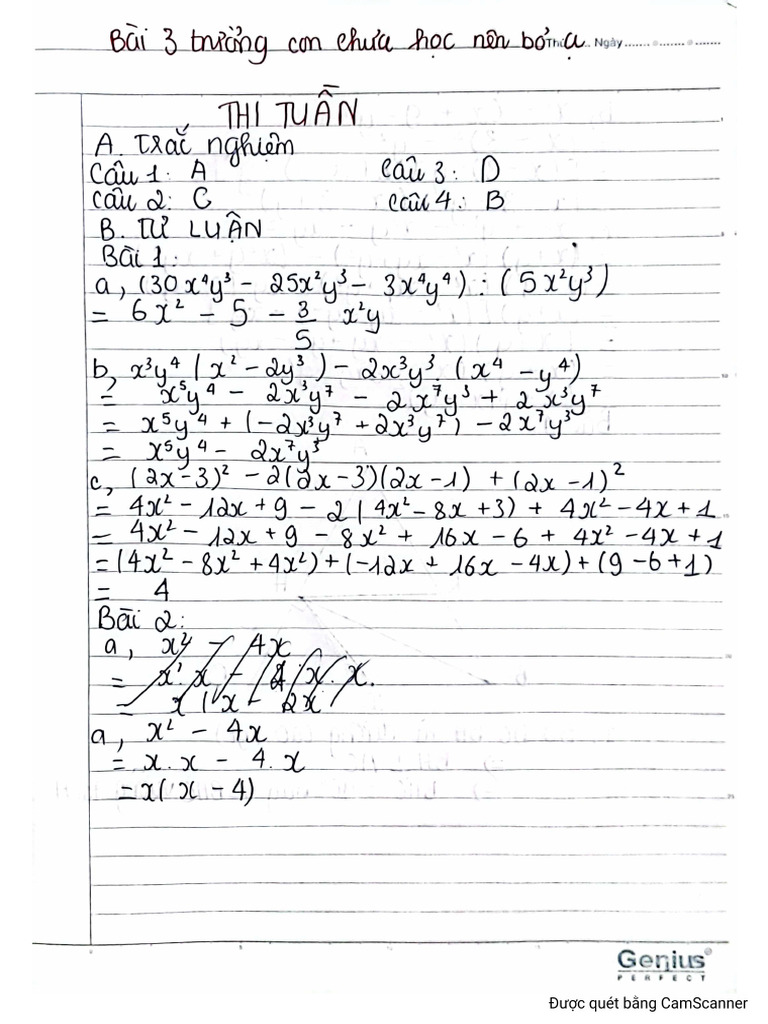 Bài 3 trường con chưa học nên bỏ ạ Thứ....... Ngày.....................
THI TUẦN
A. Trắc nghiệm
Câu 1: A Câu 3: D
Câu 2: C Câu 4: B
B. TỰ LUẬN
Bài 1:
a, (30x⁴y³ - 25x²y³ - 3x⁴y⁴) : (5x²y³)
= 6x² - 5 - 3/5 x²y
b, x³y⁴(x² - 2y³) - 2x³y³.(x⁴ - y⁴)
= x⁵y⁴ - 2x³y⁷ - 2x⁷y³ + 2x³y⁷
= x⁵y⁴ + (-2x³y⁷ + 2x³y⁷) - 2x⁷y³
= x⁵y⁴ - 2x⁷y³
c, (2x-3)² - 2(2x-3)(2x-1) + (2x-1)²
= 4x² - 12x + 9 - 2(4x² - 8x + 3) + 4x² - 4x + 1
= 4x² - 12x + 9 - 8x² + 16x - 6 + 4x² - 4x + 1
= (4x² - 8x² + 4x²) + (-12x + 16x - 4x) + (9 - 6 + 1)
= 4
Bài 2:
a, x² - 4x
a, x² - 4x
= x.x - 4.x
= x(x - 4)
Genius
PERFECT
Được quét bằng CamScanner